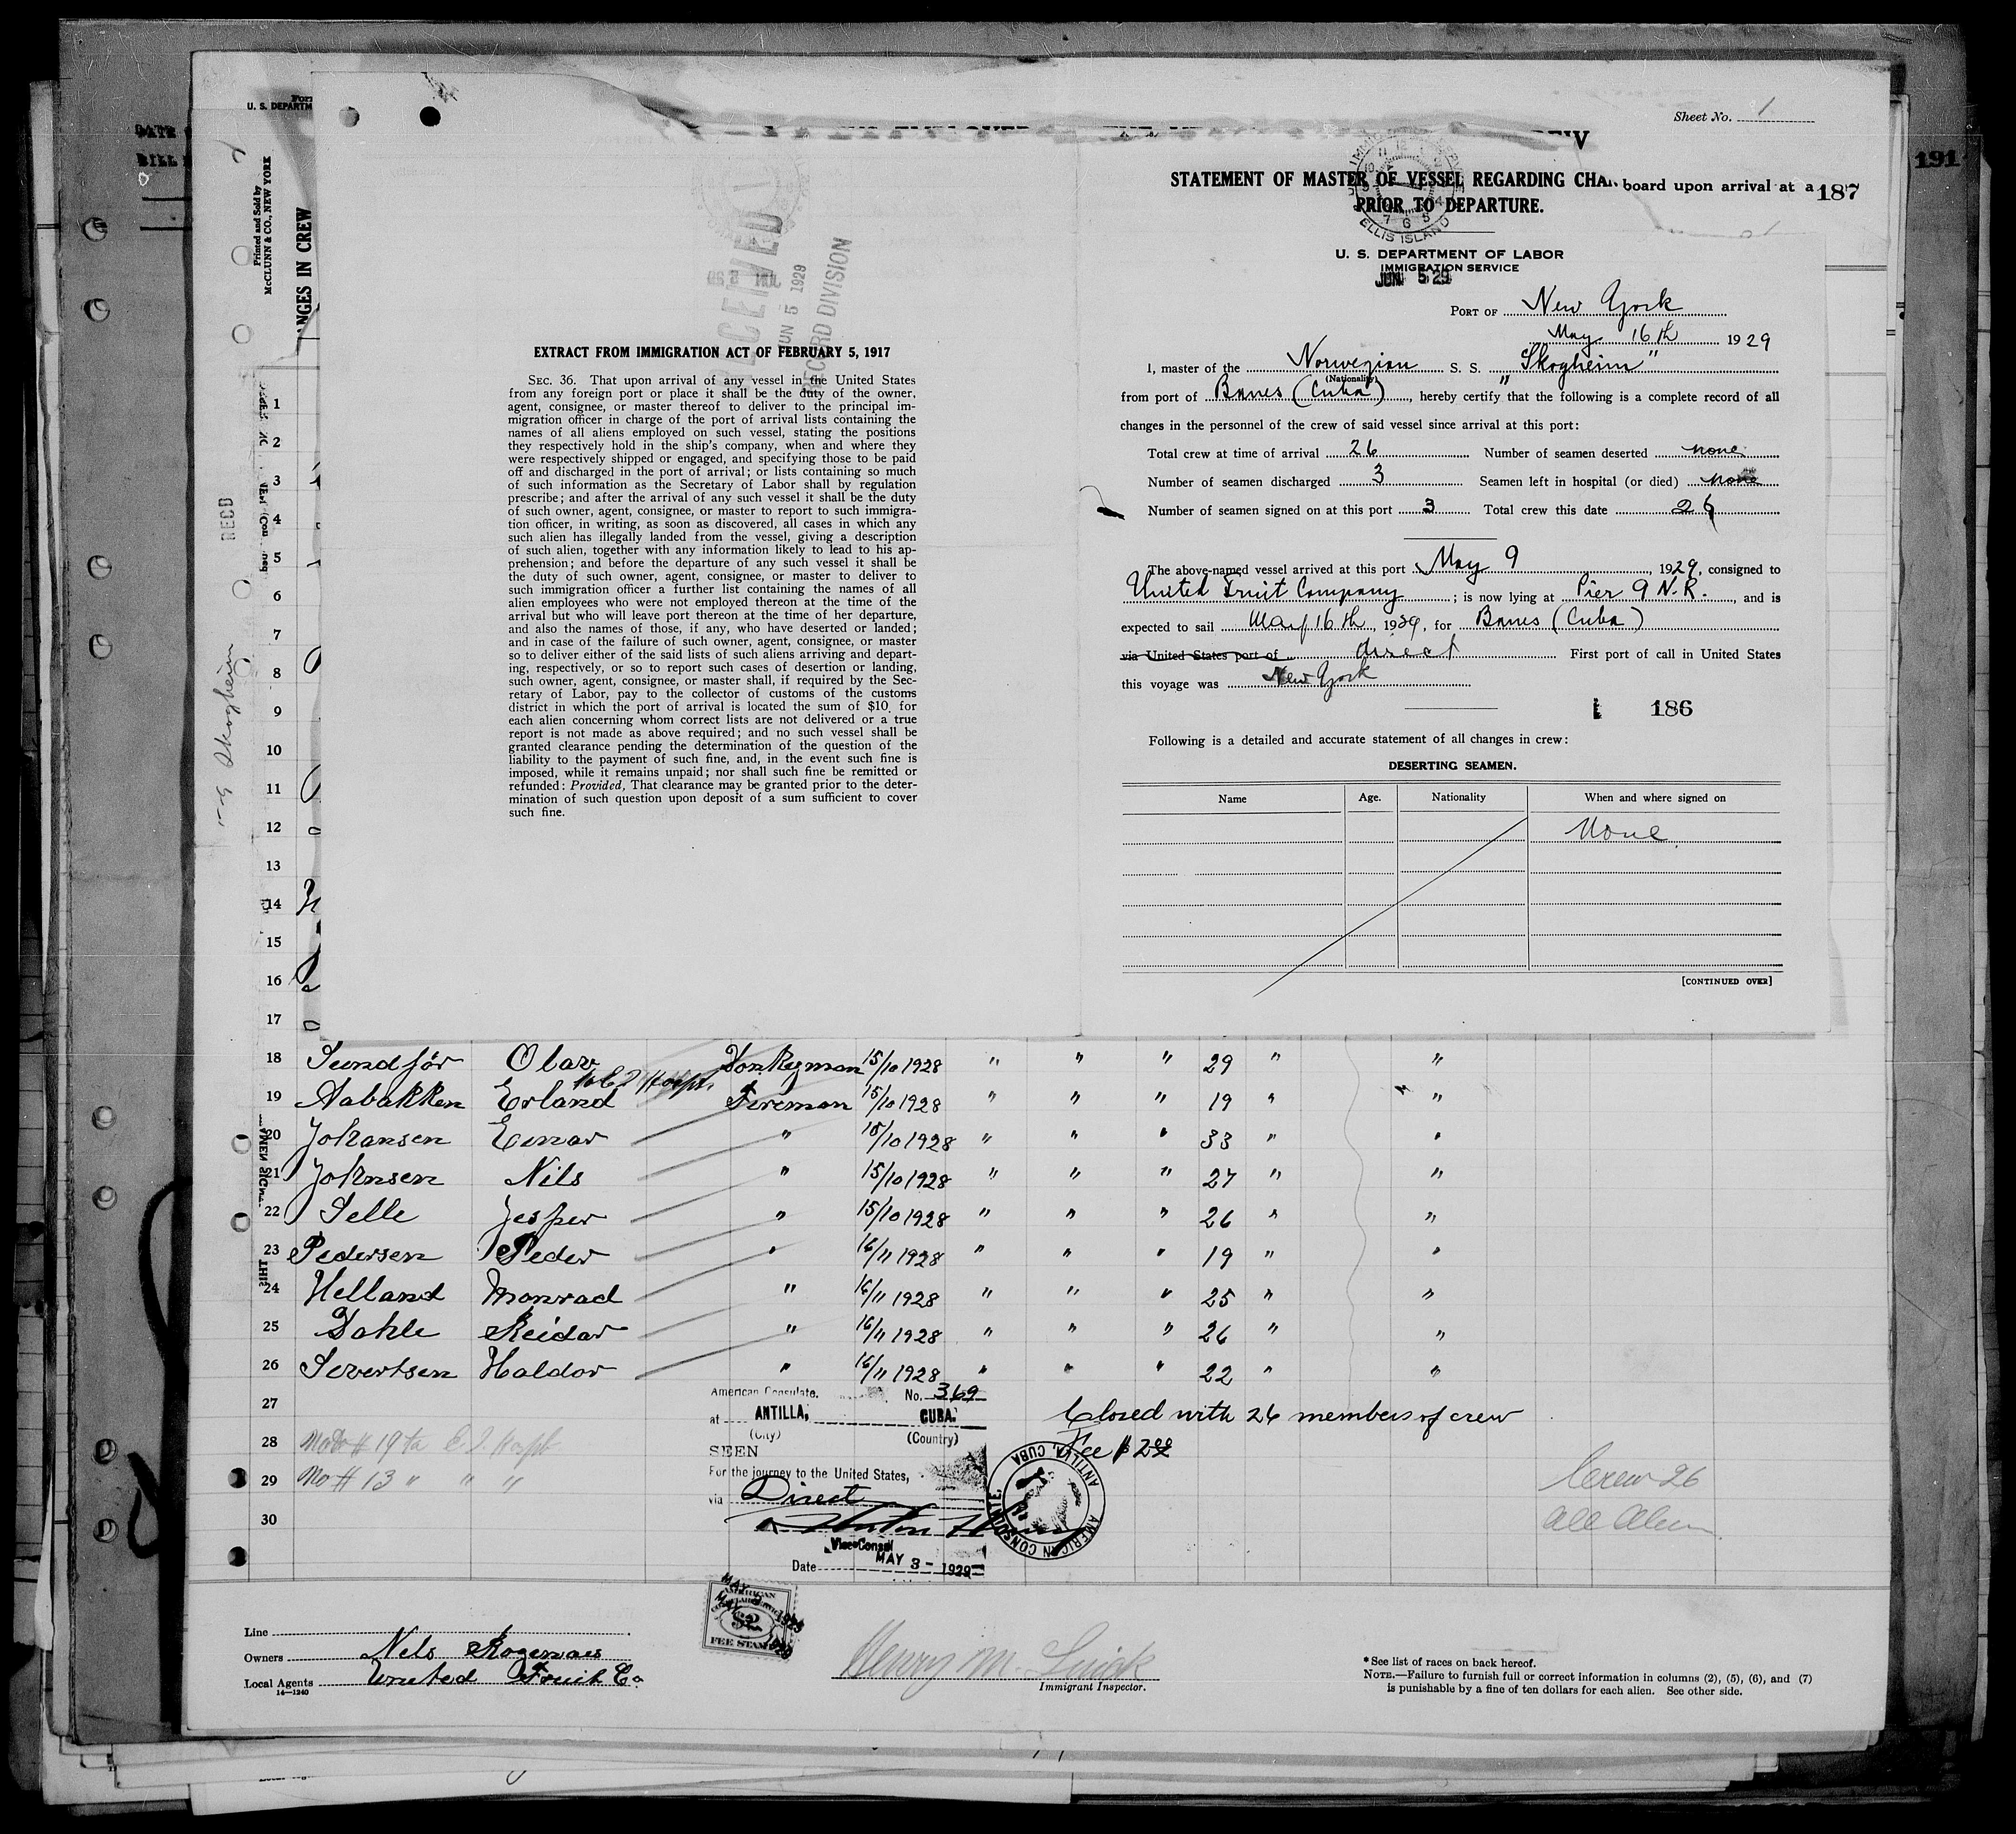 Sheet No. 1
191
STATEMENT OF MASTER OF VESSEL REGARDING CHAN
board upon arrival at a
187
PRIOR TO DEPARTURE.
ELLIS ISLAND
U. S. DEPARTMENT OF LABOR
IMMIGRATION SERVICE
JUN 5 29
PORT OF New York
May 16th 1929
I, master of the Norwegian S. S. "Skogheim"
(Nationality)
from port of Banes (Cuba), hereby certify that the following is a complete record of all
changes in the personnel of the crew of said vessel since arrival at this port:
Total crew at time of arrival 26 Number of seamen deserted none
Number of seamen discharged 3 Seamen left in hospital (or died) none
Number of seamen signed on at this port 3 Total crew this date 26
The above-named vessel arrived at this port May 9, 1929, consigned to
United Fruit Company; is now lying at Pier 9 N.R., and is
expected to sail May 16th, 1929, for Banes (Cuba)
via United States port of direct First port of call in United States
this voyage was New York
186
Following is a detailed and accurate statement of all changes in crew:
DESERTING SEAMEN.
Name Age. Nationality When and where signed on
None
[CONTINUED OVER]
U. S. DEPARTM
Printed and Sold by
McCLUNN & CO., NEW YORK
ANGES IN CREW
RECEIVED
JUN 5 1929
RECORD DIVISION
RECD
Skogheim
EXTRACT FROM IMMIGRATION ACT OF FEBRUARY 5, 1917
SEC. 36. That upon arrival of any vessel in the United States
from any foreign port or place it shall be the duty of the owner,
agent, consignee, or master thereof to deliver to the principal im-
migration officer in charge of the port of arrival lists containing the
names of all aliens employed on such vessel, stating the positions
they respectively hold in the ship's company, when and where they
were respectively shipped or engaged, and specifying those to be paid
off and discharged in the port of arrival; or lists containing so much
of such information as the Secretary of Labor shall by regulation
prescribe; and after the arrival of any such vessel it shall be the duty
of such owner, agent, consignee, or master to report to such immigra-
tion officer, in writing, as soon as discovered, all cases in which any
such alien has illegally landed from the vessel, giving a description
of such alien, together with any information likely to lead to his ap-
prehension; and before the departure of any such vessel it shall be
the duty of such owner, agent, consignee, or master to deliver to
such immigration officer a further list containing the names of all
alien employees who were not employed thereon at the time of the
arrival but who will leave port thereon at the time of her departure,
and also the names of those, if any, who have deserted or landed;
and in case of the failure of such owner, agent, consignee, or master
so to deliver either of the said lists of such aliens arriving and depart-
ing, respectively, or so to report such cases of desertion or landing,
such owner, agent, consignee, or master shall, if required by the Sec-
retary of Labor, pay to the collector of customs of the customs
district in which the port of arrival is located the sum of $10 for
each alien concerning whom correct lists are not delivered or a true
report is not made as above required; and no such vessel shall be
granted clearance pending the determination of the question of the
liability to the payment of such fine, and, in the event such fine is
imposed, while it remains unpaid; nor shall such fine be remitted or
refunded: Provided, That clearance may be granted prior to the deter-
mination of such question upon deposit of a sum sufficient to cover
such fine.
1
2
3
4
5
6
7
8
9
10
11
12
13
14
15
16
17
18 Sundför Olav Donkeyman 15/10 1928 " " " 29 " "
19 Aabakken Erland Fireman 15/10 1928 " " " 19 " "
20 Johansen Einar " 15/10 1928 " " " 33 " "
21 Johnsen Nils " 15/10 1928 " " " 27 " "
22 Selle Jesper " 15/10 1928 " " " 26 " "
23 Pedersen Peder " 16/11 1928 " " " 19 " "
24 Helland Monrad " 16/11 1928 " " " 25 " "
25 Dahle Reidar " 16/11 1928 " " " 26 " "
26 Sivertsen Haldor " 16/11 1928 " " " 22 " "
27
American Consulate. No. 369
at ANTILLA, CUBA.
(City) (Country)
Closed with 26 members of crew
Fee $ 2.00
28
SEEN
29 No # 13 " " "
For the journey to the United States,
via Direct
30
Crew 26
All Alien
AMERICAN CONSULATE. ANTILLA, CUBA
Vice Consul
Date MAY 3 - 1929
AMERICAN
$2
FEE STAMP
Line
Owners Nels Rogenaes
Local Agents United Fruit Co.
14—1240
Henry M.
Immigrant Inspector.
* See list of races on back hereof.
NOTE.—Failure to furnish full or correct information in columns (2), (5), (6), and (7)
is punishable by a fine of ten dollars for each alien. See other side.